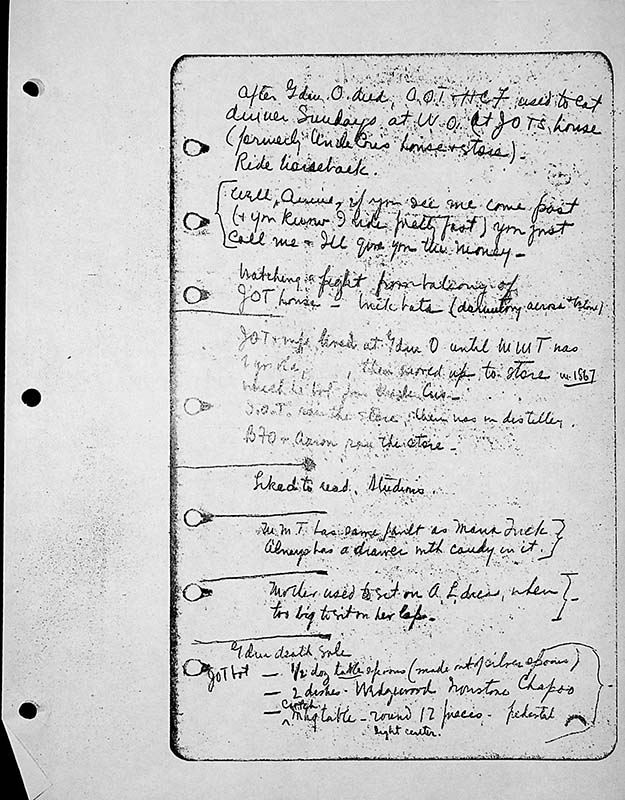 After Gdm. O. died, A.O.T. + HCF used to eat
dinner Sundays at W.O. (at JOT's house
(formerly Uncle Cris house + store).
Ride horseback.
Well, Annie, if you see me come past
(+ you know I ride pretty fast) you just
call me + I'll give you the money -
Watching a fight from balcony of
JOT house - brickbats (distillery across
JOT + wife lived at Gdm O until WMT was
1 yr old, then moved up to store in 1867
which he bot from Uncle Cris -
J.O.T. ran the store, then was in distillery.
BFO + Aaron ran the store -
Liked to read. Studious.
WMT has same fault as Mama Tuck
Always has a drawer with candy in it.
Mother used to sit on A. L. dress, when
too big to sit on her lap -
Gdm death sale
JOT bot - 1/2 doz table spoons (made out of silver spoons)
- 2 dishes - Wedgewood Ironstone
- table - round 12 pieces - pedestal
center.